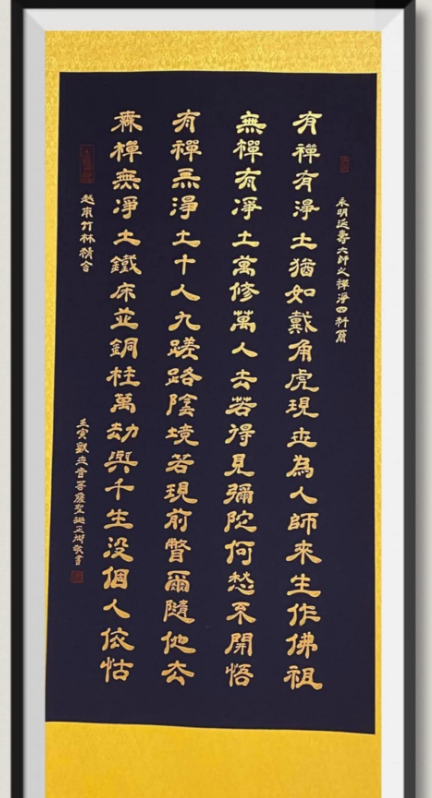 永明延壽大師之禪淨四料簡
有禪有淨土猶如戴角虎現世為人師來生作佛祖
無禪有淨土萬修萬人去若得見彌陀何愁不開悟
有禪無淨土十人九蹉路陰境若現前瞥爾隨他去
無禪無淨土鐵床並銅柱萬劫與千生沒個人依怙
壬寅觀世音菩薩聖誕
敬書
竹林精舍